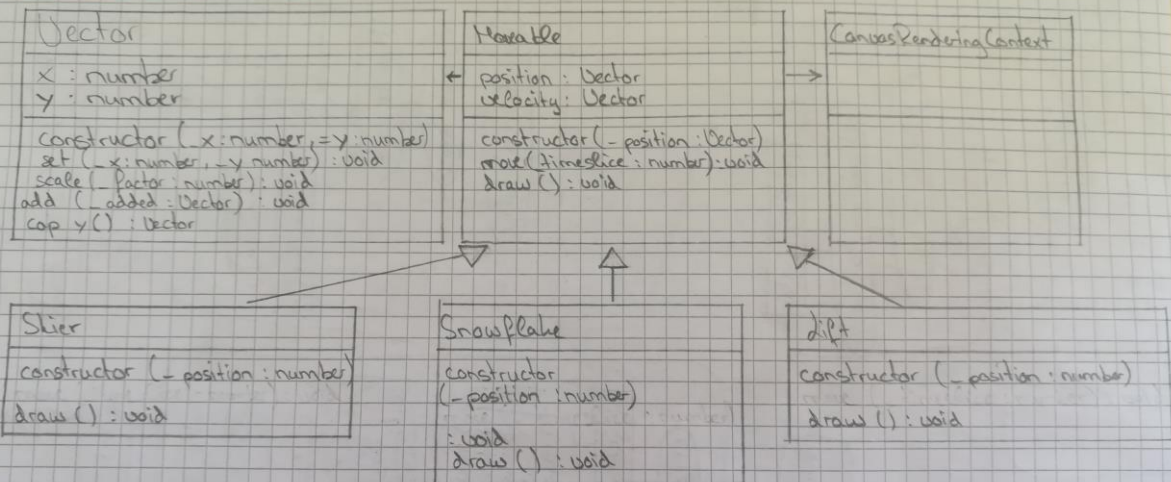 Vector
x : number
y : number
constructor (_x:number, =y:number)
set (_x:number, _y number) : void
scale (_factor : number) : void
add (_added : Vector) : void
cop y() : Vector
Movable
position : Vector
velocity : Vector
constructor (_position : Vector)
move (_timeslice : number) : void
draw () : void
CanvasRenderingContext
Skier
constructor (_position : number)
draw () : void
Snowflake
constructor
(_position : number)
: void
draw () : void
Lift
constructor (_position : number)
draw () : void